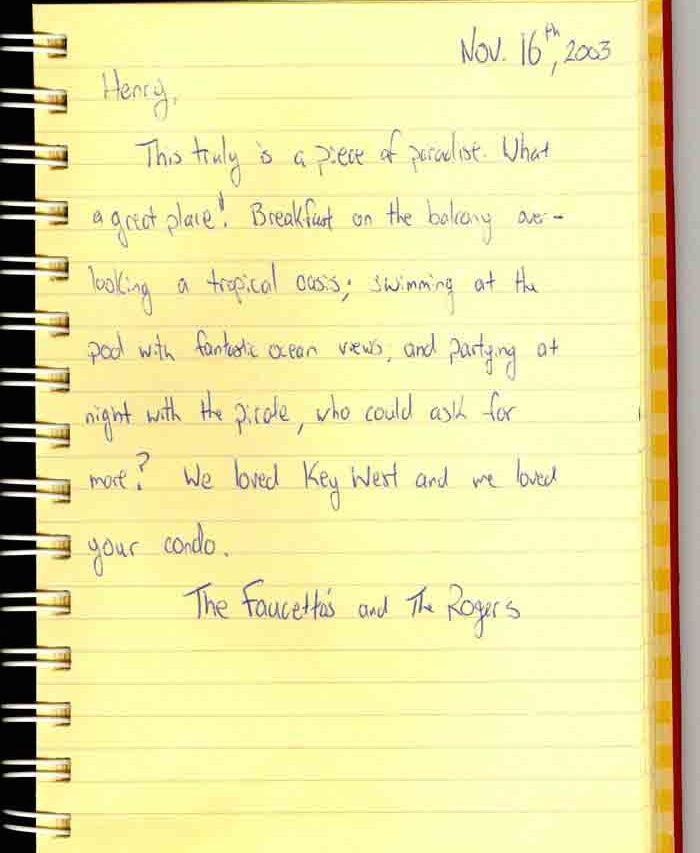 Nov. 16th, 2003
Henry,
This truly is a piece of paradise. What
a great place! Breakfast on the balcony over-
looking a tropical oasis; swimming at the
pool with fantastic ocean views, and partying at
night with the pirate, who could ask for
more? We loved Key West and we loved
your condo.
The Faucetta's and The Rogers